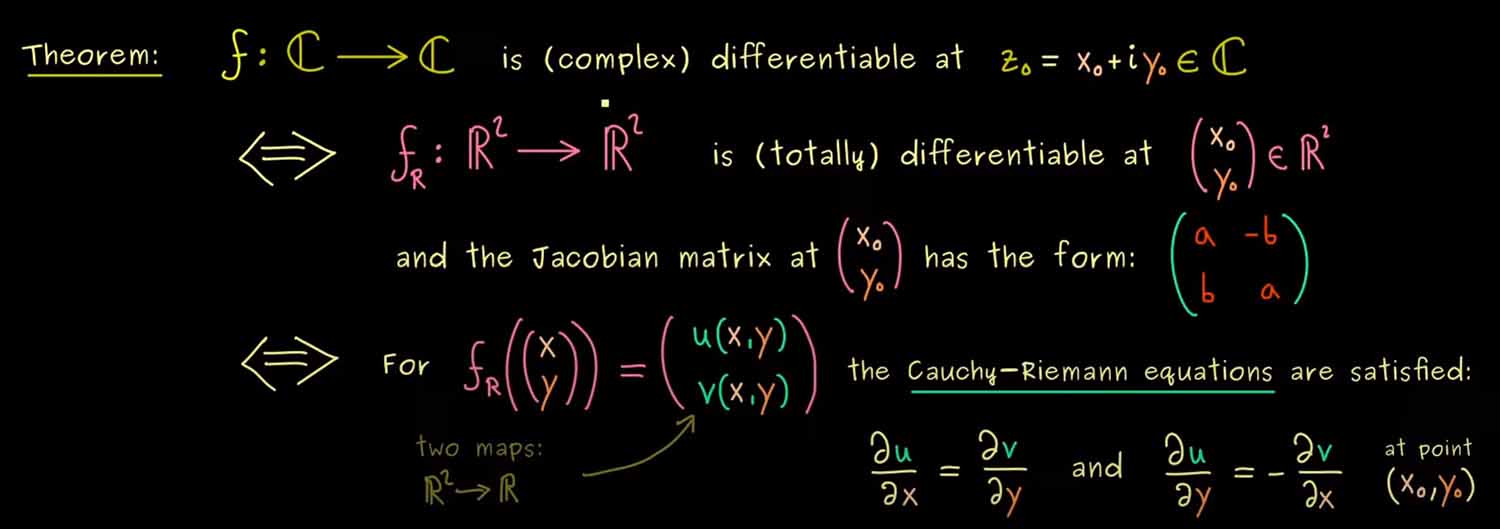 Theorem: f: ℂ ⟶ ℂ is (complex) differentiable at z₀ = x₀+iy₀ ∈ ℂ
⟺ f_R: ℝ² ⟶ ℝ² is (totally) differentiable at (x₀ y₀) ∈ ℝ²
and the Jacobian matrix at (x₀ y₀) has the form: (a -b b a)
⟺ For f_R((x y)) = (u(x,y) v(x,y)) the Cauchy-Riemann equations are satisfied:
two maps:
ℝ² → ℝ
∂u/∂x = ∂v/∂y and ∂u/∂y = -∂v/∂x at point (x₀,y₀)